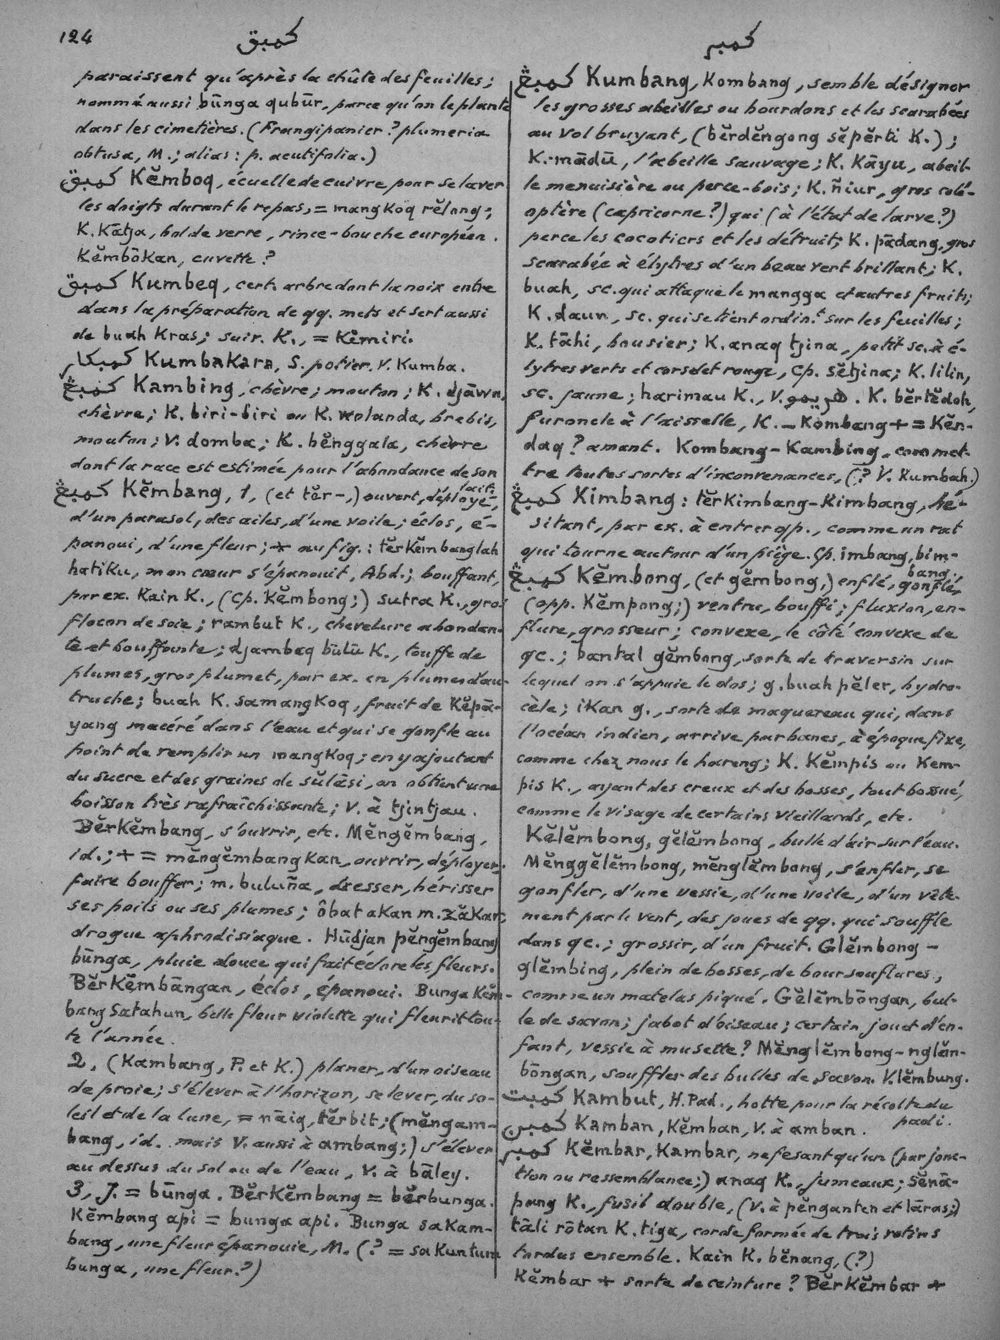 124
كمبق
كمبر
paraissent qu'après la chûte des feuilles;
nommé aussi būnga qubūr, parce qu'on le plante
dans les cimetières. (Frangipanier? plumeria
obtusa, M.; alias: p. acutifolia.)
كمبق Kĕmboq, écuelle de cuivre pour se laver
les doigts durant le repas, = mangkoq rĕlang;
K. Kātja, bol de verre, rince-bouche européen.
Kĕmbōkan, cuvette?
كمبق Kumbeq, cert. arbre dont la noix entre
dans la préparation de qq. mets et sert aussi
de buah Kras; suiv. K., = Kĕmiri.
كمبكار Kumbakara, S. potier. V. Kumba.
كمبڠ Kambing, chèvre; mouton; K. djāwa,
chèvre; K. biri-biri ou K. wolanda, brebis,
mouton; V. domba; K. bĕnggala, chèvre
dont la race est estimée pour l'abondance de son
lait.
كمبڠ Kĕmbang, 1, (et tĕr-,) ouvert, déployé,
d'un parasol, des ailes, d'une voile; éclos, é-
panoui, d'une fleur; + au fig.: tĕrkĕmbanglah
hatiku, mon cœur s'épanouit, Abd.; bouffant,
par ex. Kain K., (Cp. Kĕmbong;) sutra K., gros
flocon de soie; rambut K., chevelure abondan-
te et bouffante; djambaq būlū K., touffe de
plumes, gros plumet, par ex. en plumes d'au-
truche; buah K. samangkoq, fruit de Kĕpā-
yang macéré dans l'eau et qui se gonfle au
point de remplir un mangkoq; en y ajoutant
du sucre et des graines de sŭlāsi, on obtient une
boisson très rafraîchissante; V. à tjintjau.
Bĕrkĕmbang, s'ouvrir, etc. Mĕngĕmbang,
id.; + = mĕngĕmbangkan, ouvrir, déployer,
faire bouffer; m. buluña, dresser, hérisser
ses poils ou ses plumes; ôbat akan m. zăkar,
drogue aphrodisiaque. Hūdjan pĕngĕmbang
būnga, pluie douce qui fait éclore les fleurs.
Bĕrkĕmbāngan, éclos, épanoui. Bunga Kĕm-
bang satahun, belle fleur violette qui fleurit tou-
te l'année.
2, (Kambang, P. et K.) planer, d'un oiseau
de proie; s'élever à l'horizon, se lever, du so-
leil et de la lune, = nāiq, tĕrbit; (mĕngam-
bang, id. mais V. aussi à ambang;) s'élever
au dessus du sol ou de l'eau, V. à bāley.
3, J. = būnga. Bĕrkĕmbang = bĕrbunga.
Kĕmbang api = bunga api. Bunga sakam-
bang, une fleur épanouie, M. (? = sakuntum
bunga, une fleur.?)
كمبڠ Kumbang, Kombang, semble désigner
les grosses abeilles ou bourdons et les scarabées
au vol bruyant, (bĕrdĕngong sĕpĕrti K.);
K. mādū, l'abeille sauvage; K. Kāyu, abeil-
le menuisière ou perce-bois; K. ñiur, gros colé-
optère (capricorne?) qui (à l'état de larve?)
perce les cocotiers et les détruit; K. pādang, gros
scarabée à élytres d'un beau vert brillant; K.
buah, sc. qui attaque le mangga et autres fruits;
K. daun, sc. qui se tient ordin.t sur les feuilles;
K. tāhi, bousier; K. anaq tjina, petit sc. à é-
lytres verts et corselet rouge, Cp. sĕtjina; K. lilin,
sc. jaune; harimau K., V. هريمو. K. bĕrtĕdoh,
furoncle à l'aisselle, K. - Kombang + = Kĕn-
daq? amant. Kombang-Kambing, commet-
tre toutes sortes d'inconvenances, (? V. Kumbah.)
كمبڠ Kimbang: tĕrkimbang-Kimbang, hé-
sitant, par ex. à entrer qp., comme un rat
qui tourne autour d'un piège. Cp. imbang, bim-
bang.
كمبڠ Kĕmbong, (et gĕmbong,) enflé, gonflé,
(opp. Kĕmpong;) ventru, bouffi; fluxion, en-
flure, grosseur; convexe, le côté convexe de
qc.; bantal gĕmbong, sorte de traversin sur
lequel on s'appuie le dos; g. buah pĕler, hydro-
cèle; ikan g., sorte de maquereau qui, dans
l'océan indien, arrive par bancs, à époque fixe,
comme chez nous le hareng; K. Kĕmpis ou Kem-
pis K., ayant des creux et des bosses, tout bossué,
comme le visage de certains vieillards, etc.
Kĕlĕmbong, gĕlĕmbong, bulle d'air sur l'eau.
Mĕnggĕlĕmbong, mĕnglĕmbong, s'enfler, se
gonfler, d'une vessie, d'une voile, d'un vête-
ment par le vent, des joues de qq. qui souffle
dans qc.; grossir, d'un fruit. Glĕmbong-
glĕmbing, plein de bosses, de boursouflures,
comme un matelas piqué. Gĕlĕmbōngan, bul-
le de savon; jabot d'oiseau; certain jouet d'en-
fant, vessie à musette? Mĕnglĕmbong-nglĕm-
bōngan, souffler des bulles de savon. V. lĕmbung.
كمبت Kambut, H. Pad., hotte pour la récolte du
padi.
كمبن Kamban, Kĕmban, V. à amban.
كمبر Kĕmbar, Kambar, ne fesant qu'un (par jonc-
tion ou ressemblance;) anaq K., jumeaux; sĕnā-
pang K., fusil double, (V. à pĕnganten et lāras;)
tāli rōtan K. tiga, corde formée de trois rotins
tordus ensemble. Kain K. bĕnang, (?)
Kĕmbar + sorte de ceinture? Bĕrkĕmbar +